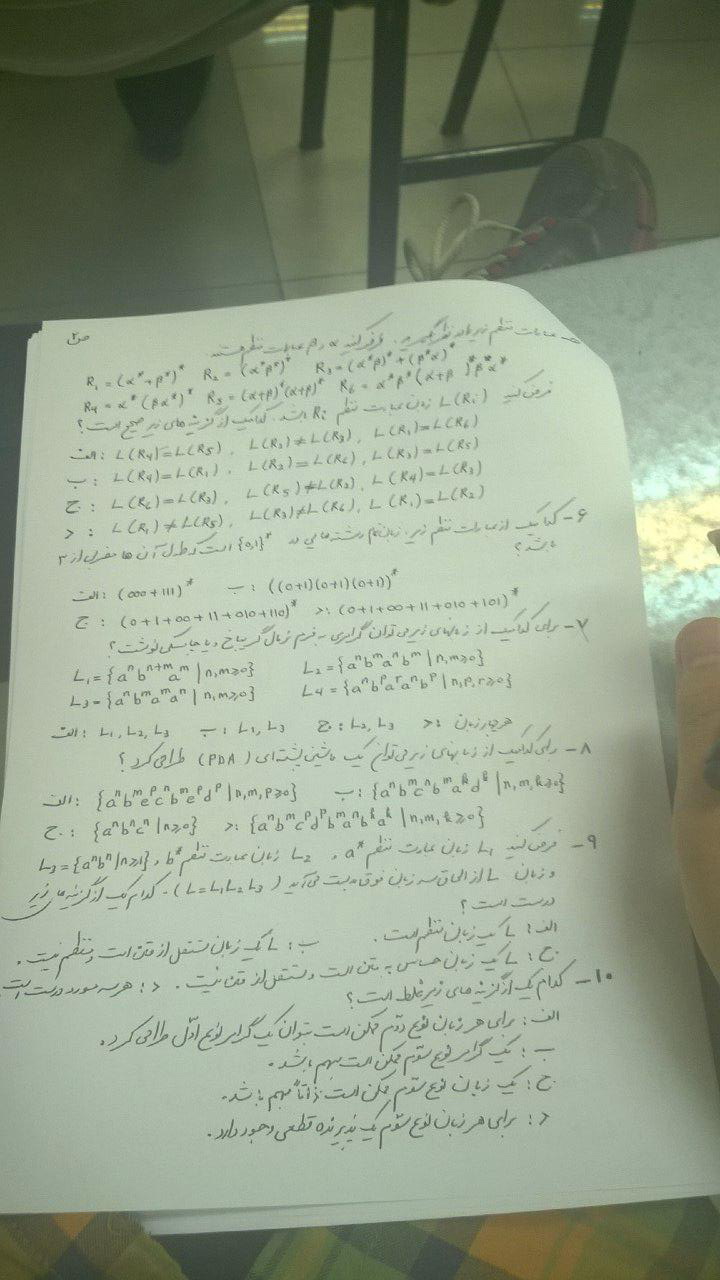 ص۲
۵- عبارات منظم زیر را در نظر بگیرید. فرض کنید α و β عبارات منظم هستند.
R₁ = (α* + β*)* R₂ = (α*β*)* R₃ = (α*β)* + (β*α)*
R₄ = α*(βα*)* R₅ = (α+β)*(α+β)* R₆ = α*β*(α+β)*β*α*
فرض کنید L(Rᵢ) زبان عبارت منظم Rᵢ باشد. کدامیک از گزینه های زیر صحیح است؟
الف: L(R₄)=L(R₅) , L(R₂)≠L(R₃) , L(R₁)=L(R₆)
ب: L(R₄)=L(R₁) , L(R₂)=L(R₆) , L(R₃)=L(R₅)
ج: L(R₆)=L(R₃) , L(R₅)≠L(R₂) , L(R₄)=L(R₃)
د: L(R₁)≠L(R₅) , L(R₃)≠L(R₆) , L(R₁)=L(R₂)
۶- کدامیک از عبارات منظم زیر، زبان تمام رشته هایی در {0,1}* است که طول آن ها مضربی از ۳
باشد؟
الف: (000+111)* ب: ((0+1)(0+1)(0+1))*
ج: (0+1+00+11+010+110)* د: (0+1+00+11+010+101)*
۷- برای کدامیک از زبانهای زیر می توان گرامری به فرم نرمال گریباخ و یا چامسکی نوشت؟
L₁={aⁿbⁿ⁺ᵐaᵐ | n,m≥0} L₂={aⁿbᵐaⁿbᵐ | n,m≥0}
L₃={aⁿbᵐaᵐaⁿ | n,m≥0} L₄={aⁿbᵖaʳaⁿbᵖ | n,p,r≥0}
الف: L₁,L₂,L₃ ب: L₁,L₃ ج: L₂,L₃ د: هر چهار زبان
۸- برای کدامیک از زبانهای زیر می توان یک ماشین پشته ای (PDA) طراحی کرد؟
الف: {aⁿbᵐeᵖcⁿbᵐeᵖdᵖ | n,m,p≥0} ب: {aⁿbᵐcⁿbᵐaᵏdᵏ | n,m,k≥0}
ج: {aⁿbⁿcⁿ | n≥0} د: {aⁿbᵐcᵖdᵖbᵐaⁿbᵏaᵏ | n,m,k≥0}
۹- فرض کنید L₁ زبان عبارت منظم a* ، L₂ زبان عبارت منظم b* و L₃={aⁿbⁿ | n≥1}
و زبان L از الحاق سه زبان فوق بدست می آید (L=L₁L₂L₃). کدام یک از گزینه های زیر
درست است؟
الف: L یک زبان منظم است. ب: L یک زبان مستقل از متن است و منظم نیست.
ج: L یک زبان حساس به متن است و مستقل از متن نیست. د: هر سه مورد درست است.
۱۰- کدام یک از گزینه های زیر غلط است؟
الف: برای هر زبان نوع دوم ممکن است بتوان یک گرامر نوع اول طراحی کرد.
ب: یک گرامر نوع سوم ممکن است مبهم باشد.
ج: یک زبان نوع سوم ممکن است ذاتاً مبهم باشد.
د: برای هر زبان نوع سوم یک پذیرنده قطعی وجود دارد.